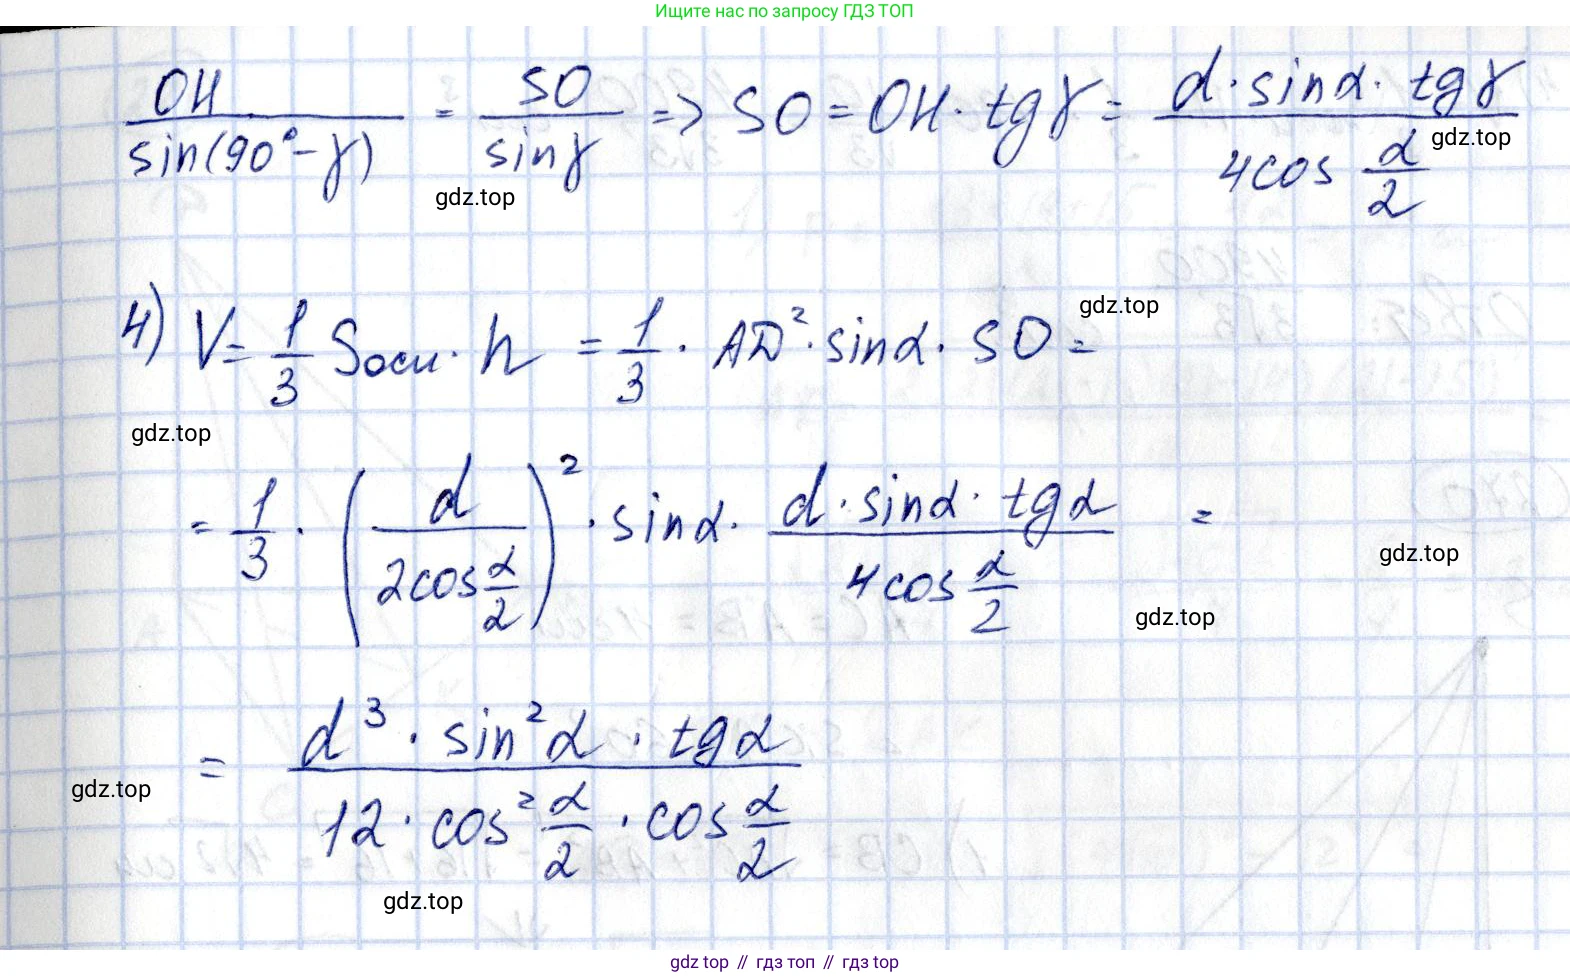 Ищите нас по запросу ГДЗ ТОП
OH / sin(90°-γ) = SO / sinγ => SO = OH · tgγ = d · sinα · tgγ / 4cos α/2
gdz.top
gdz.top
4) V = 1/3 Sосн · h = 1/3 · AD² · sinα · SO =
gdz.top
gdz.top
= 1/3 · (d / 2cos α/2)² · sinα · d · sinα · tgα / 4cos α/2 =
gdz.top
gdz.top
= d³ · sin²α · tgα / 12 · cos² α/2 · cos α/2
gdz.top
gdz.top
gdz top // гдз топ // гдз top